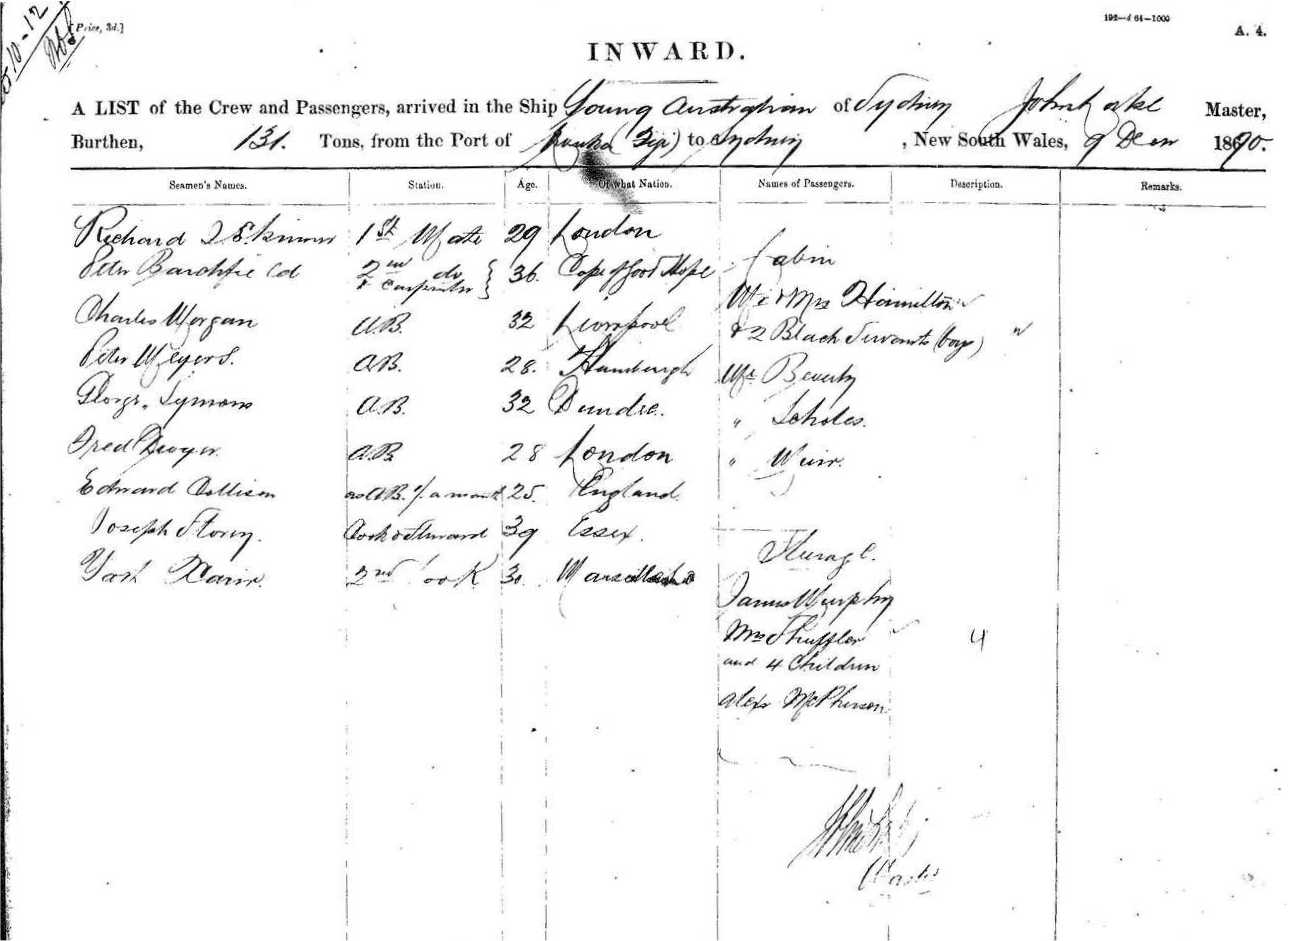 10-12
[Price, 3d.]
192—d 64—1000
A. 4.
INWARD.
A LIST of the Crew and Passengers, arrived in the Ship Young Australian of Sydney John Master,
Burthen, 131. Tons, from the Port of (Fiji) to Sydney, New South Wales, 9 Decr 1870.
Seamen's Names. Station. Age. Of what Nation. Names of Passengers. Description. Remarks.
Richard 1st Mate 29 London
Cabin
Peter 2nd do & Carpenter } 36. Cape of Good Hope
Mr & Mrs Hamilton
Charles Morgan A.B. 32 Liverpool
& 2 Black Servants (boys) "
Peter Meyers. A.B. 28. Hamburgh
Mr Beverly
George Symons A.B. 32 Dundee.
" Scholes.
Fred Dwyer. A.B. 28 London
" Muir.
Edward Collison as A.B. 1/. a month 25. England
Joseph Storey. Cook & Steward 39 Essex.
Steerage.
2nd Cook 30.
James Murphy
Mrs Shuffler 4
and 4 Children
Alexr McPherson